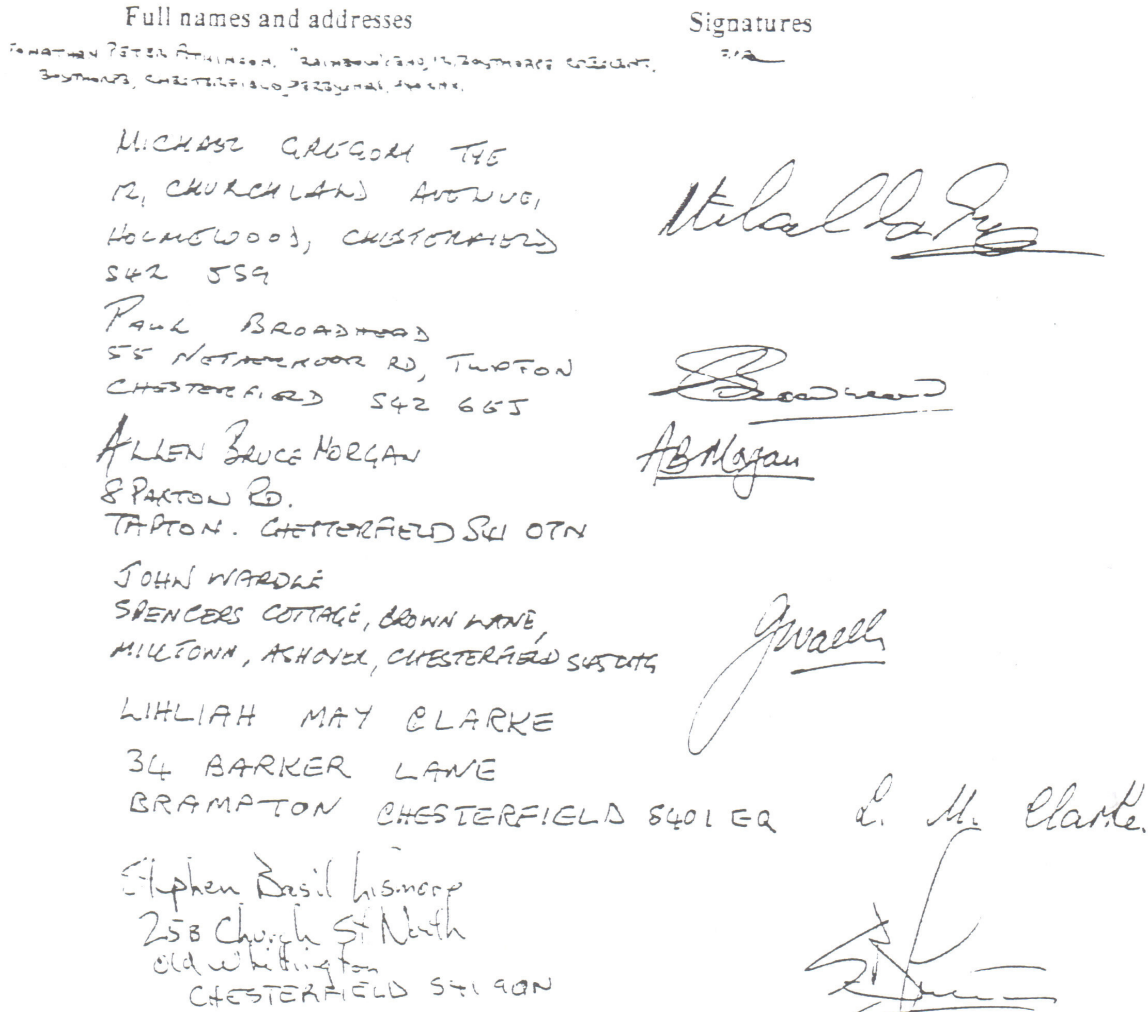 Full names and addresses Signatures
JONATHAN PETER ATKINSON, "RAINBOW END, 12, BOYTHORPE CRESCENT,
BOYTHORPE, CHESTERFIELD, DERBYSHIRE,
MICHAEL GREGORY TYE
12, CHURCHLAND AVENUE,
HOLMEWOOD, CHESTERFIELD
S42 5SG
PAUL BROADHEAD
55 NETHERMOOR RD, TUPTON
CHESTERFIELD S42 6EJ
Broadhead
ALLEN BRUCE MORGAN
AB Morgan
8 PAXTON RD.
TAPTON. CHESTERFIELD S41 0TN
JOHN WARDLE
SPENCERS COTTAGE, BROWN LANE,
MILLTOWN, ASHOVER, CHESTERFIELD
MAY CLARKE
34 BARKER LANE
BRAMPTON CHESTERFIELD S401EQ L. M. Clarke.
Stephen Basil
25B Church St North
Old Whittington
CHESTERFIELD S41 9QN